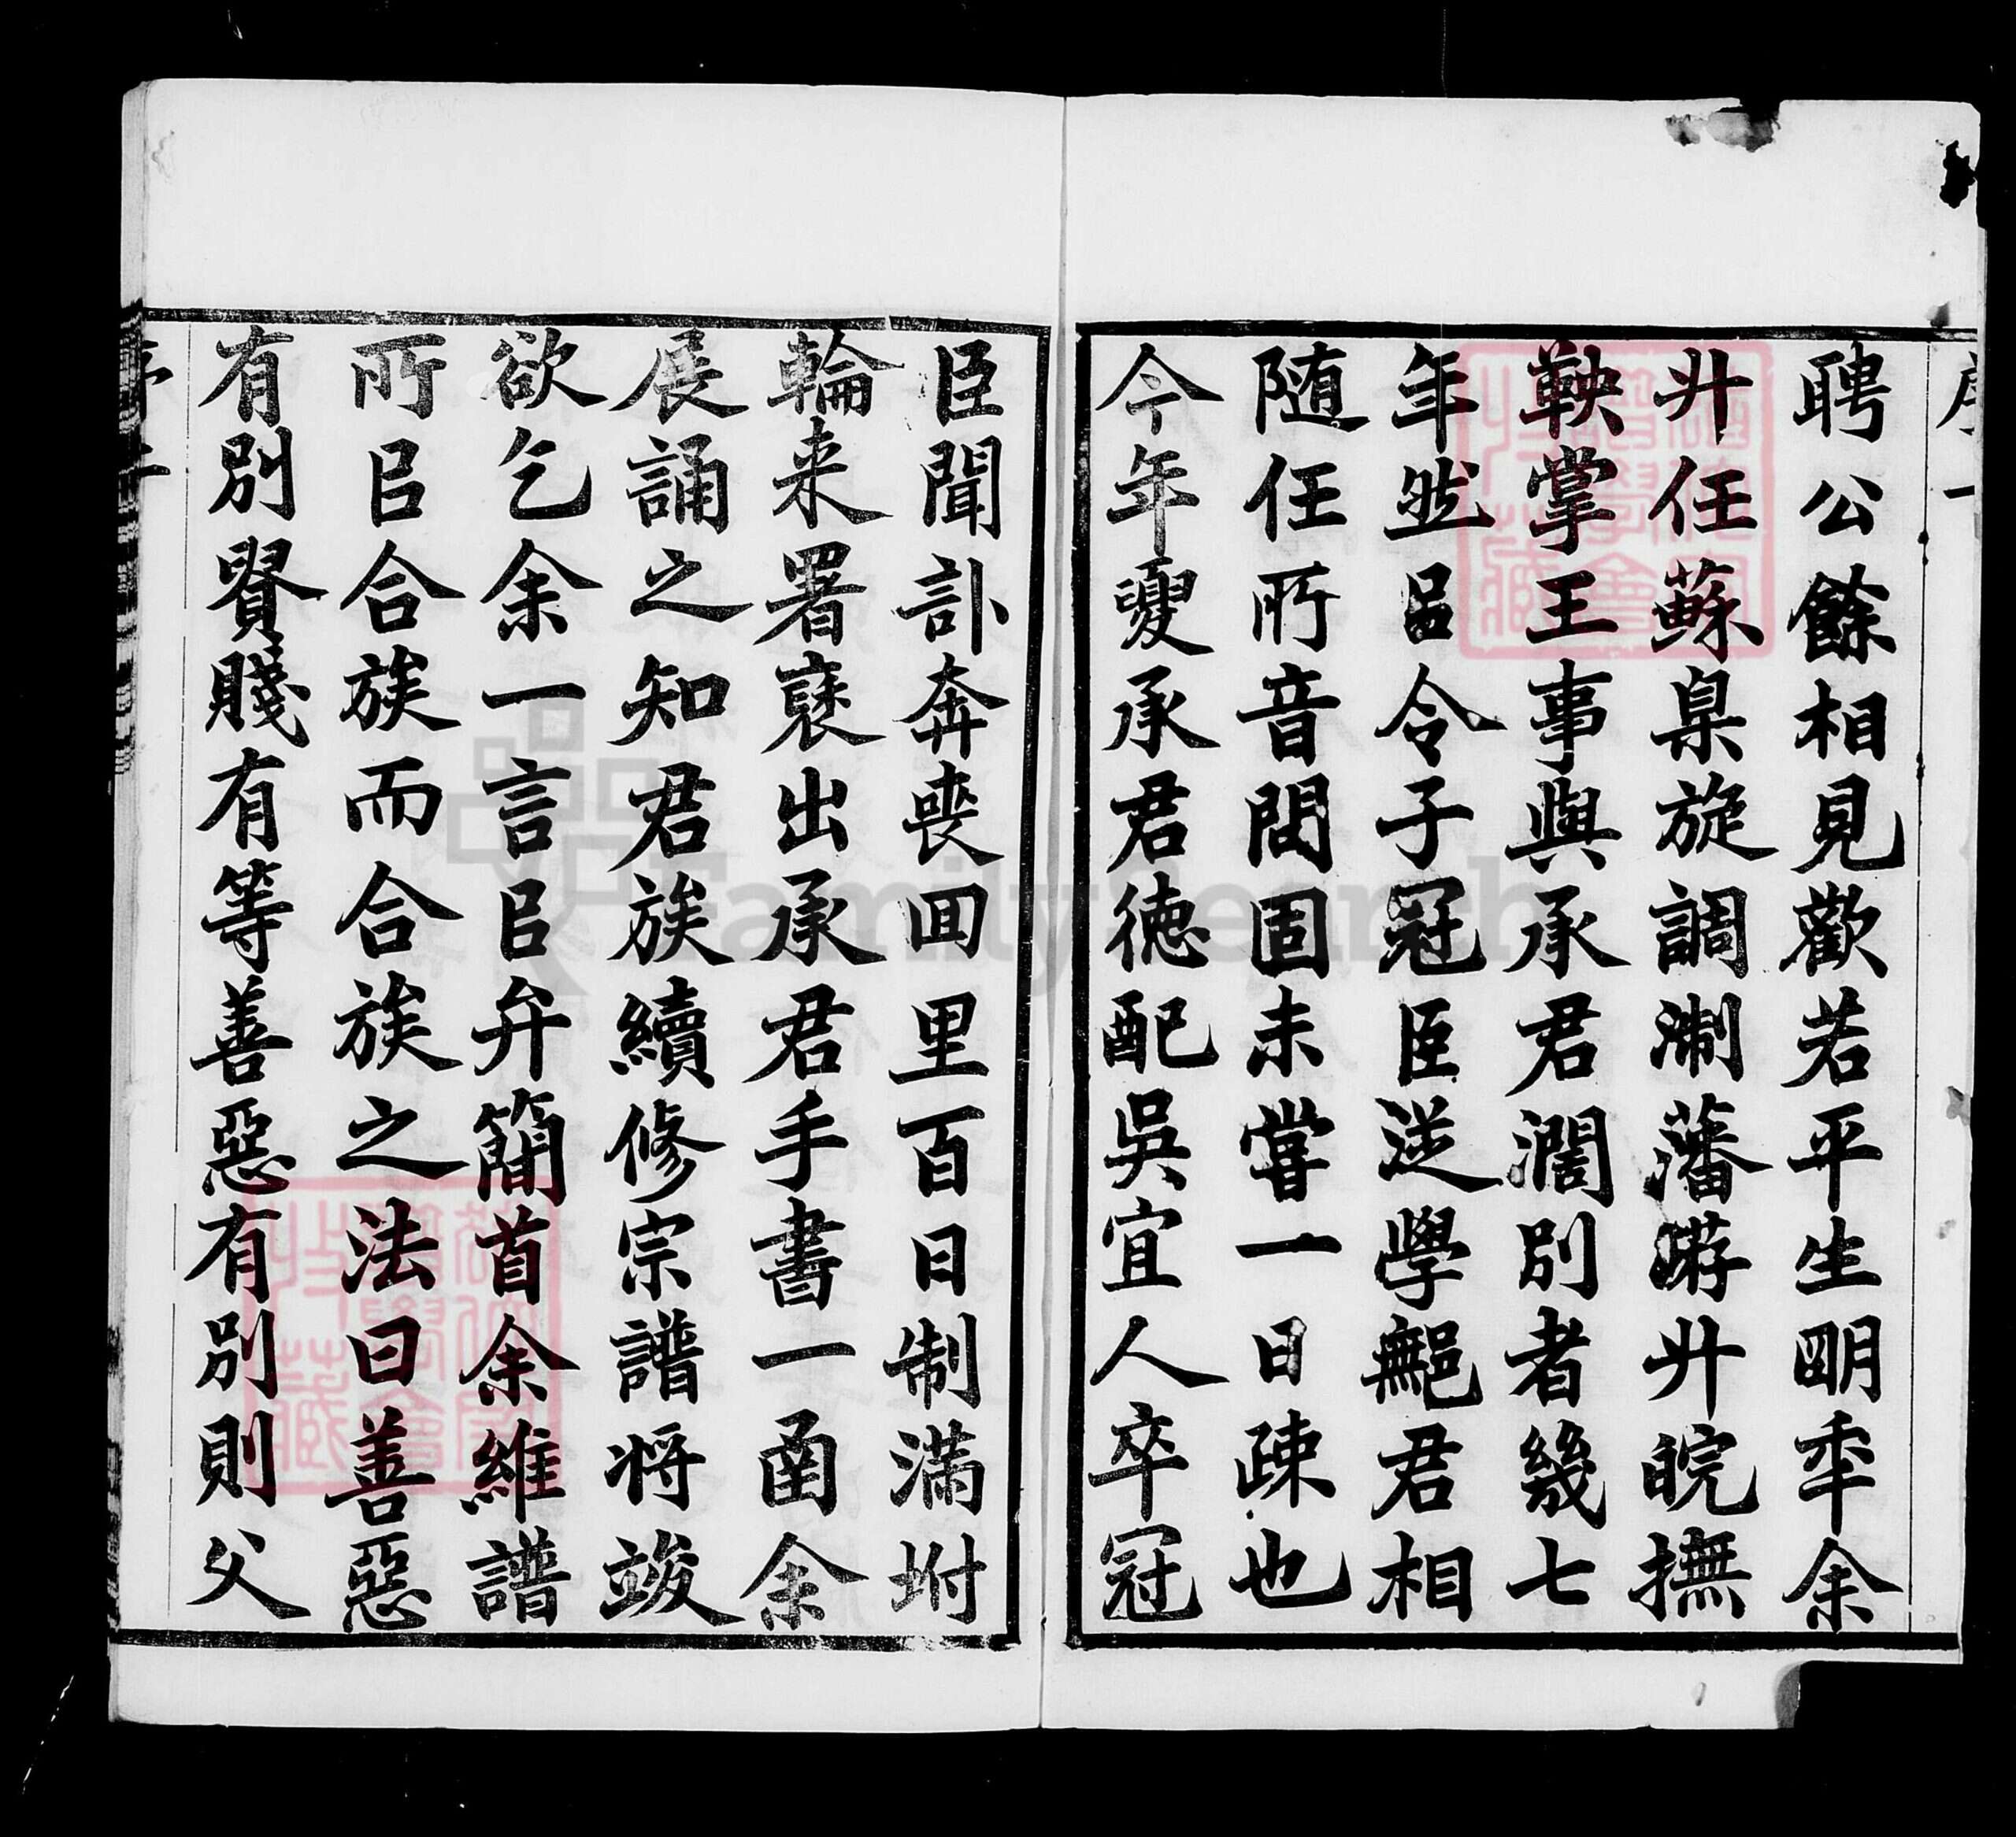 序一
聘公餘相見歡若平生明年余
升任蘇臬旋調淛藩游升皖撫
鞅掌王事與承君濶別者幾七
年然㠯令子冠臣從學無邑君相
随任所音問固未嘗一日疎也
今年夏承君德配吳宜人卒冠
臣聞訃奔喪囬里百日制滿坿
輪来署褎出承君手書一函余
展誦之知君族續修宗譜将竣
欲乞余一言㠯弁簡首余維譜
所㠯合族而合族之法曰善惡
有別賢賤有等善惡有別則父
序二
FamilySearch